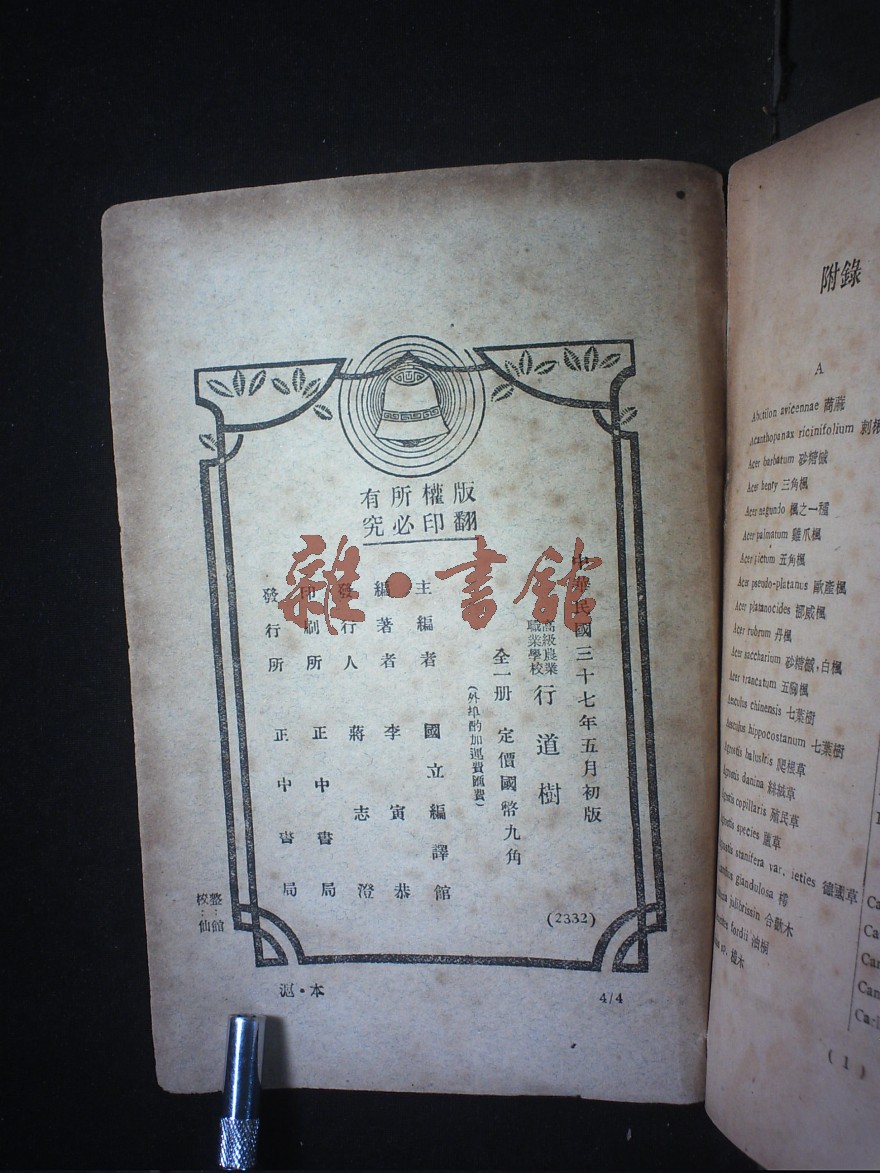 版權所有
翻印必究
中華民國三十七年五月初版
高級農業
職業學校
行道樹
全一册 定價國幣九角
(外埠酌加運費匯費)
主編者 國立編譯館
編著者 李寅恭
發行人 蔣志澄
印刷所 正中書局
發行所 正中書局
(2332)
整：館
校：仙
滬·本
4/4
雜·書館
附錄
A
Abutilon avicennae 茼蔴
Acanthopanax ricinifolium 刺楸
Acer barbatum 砂糖槭
Acer henry 三角楓
Acer negundo 楓之一種
Acer palmatum 雞爪楓
Acer pictum 五角楓
Acer pseudo-platanus 歐產楓
Acer platanocides 挪威楓
Acer rubrum 丹楓
Acer saccharium 砂糖槭,白楓
Acer truncatum 五腳楓
Aesculus chinensis 七葉樹
Aesculus hippocostanum 七葉樹
Agrostis 爬根草
Agrostis danina 絲絨草
Agrostis copillaris 殖民草
Agrostis species
Agrostis stanifera var. ieties 德國草
glandulosa 樗
julibrissin 合歡木
fordii 油桐
sp. 榿木
Ca
Ca
Can
Can
Car
(1)